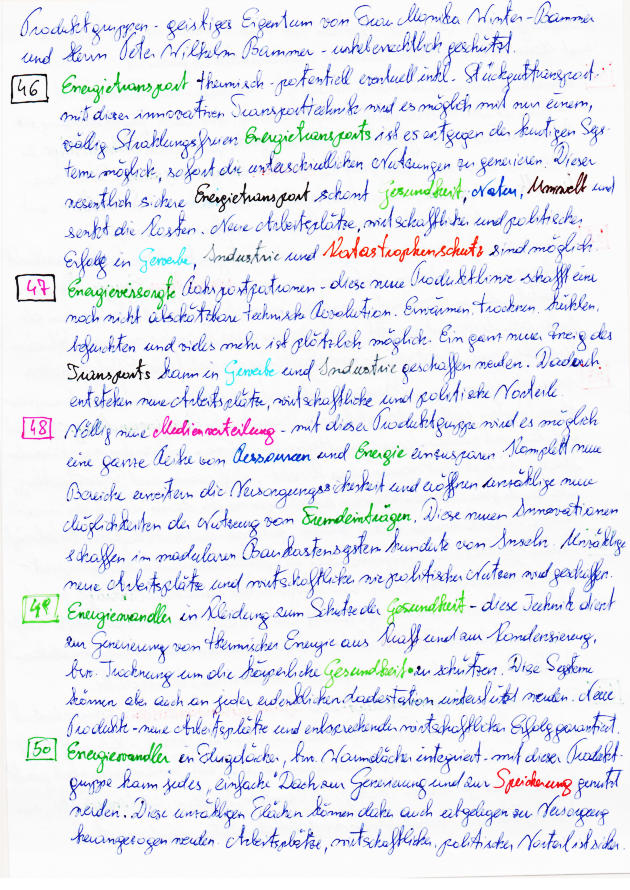 Produktgruppen - geistiges Eigentum von Frau Monika Winter-Bammer
und Herrn Peter Wilhelm Bammer - urheberrechtlich geschützt.
46 Energietransport thermisch - potentiell eventuell inkl. Stückguttransport -
mit dieser innovativen Transporttechnik wird es möglich mit nur einem,
völlig Strahlungsfreien Energietransports ist es entgegen der heutigen Sys-
teme möglich, sofort die unterschiedlichen Nutzungen zu generieren. Dieser
wesentlich sichere Energietransport schont Gesundheit, Natur, Umwelt und
senkt die Kosten. Neue Arbeitsplätze, wirtschaftlicher und politischer
Erfolg in Gewerbe, Industrie und Katastrophenschutz sind möglich.
47 Energieversorgte Rohrpostpatronen - diese neue Produktlinie schafft eine
noch nicht abschätzbare technische Revolution. Erwärmen, trocknen, kühlen,
befeuchten und vieles mehr ist plötzlich möglich. Ein ganz neuer Zweig des
Transports kann in Gewerbe und Industrie geschaffen werden. Dadurch
entstehen neue Arbeitsplätze, wirtschaftliche und politische Vorteile.
48 Völlig neue Medienverteilung - mit dieser Produktgruppe wird es möglich
eine ganze Reihe von Ressourcen und Energie einzusparen. Komplett neue
Bereiche erweitern die Versorgungssicherheit und eröffnen unzählige neue
Möglichkeiten der Nutzung von Fremdeinträgen. Diese neuen Innovationen
schaffen im modularen Baukastensystem hunderte von Inseln. Unzählige
neue Arbeitsplätze und wirtschaftlicher wie politischer Nutzen wird geschaffen.
49 Energiewandler in Kleidung zum Schutze der Gesundheit - diese Technik dient
zur Generierung von thermischer Energie aus Kraft und zur Kondensierung,
bzw. Trocknung um die körperliche Gesundheit zu schützen. Diese Systeme
können aber auch an jeder erdenklichen Ladestation unterstützt werden. Neue
Produkte - neue Arbeitsplätze und entsprechender wirtschaftlicher Erfolg garantiert.
50 Energiewandler in Flugdächer, bzw. Warmdächer integriert - mit dieser Produkt-
gruppe kann jedes "einfache" Dach zur Generierung und zur Speicherung genutzt
werden. Diese unzähligen Flächen können daher auch entgelegen zur Versorgung
herangezogen werden. Arbeitsplätze, wirtschaftlicher, politischer Vorteil ist sicher.